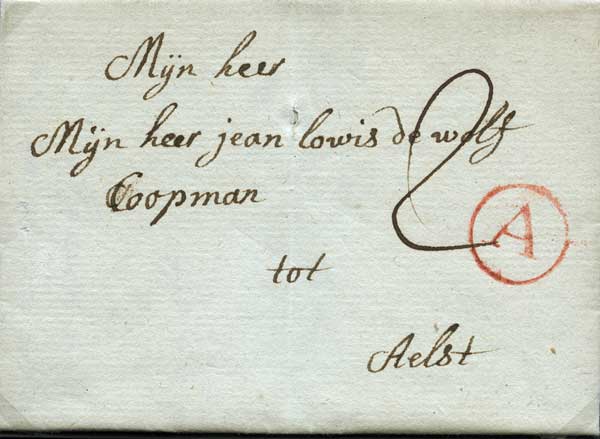 Mijn heer
Mijn heer jean lowis de wolf
Coopman
2
A
tot
Aelst